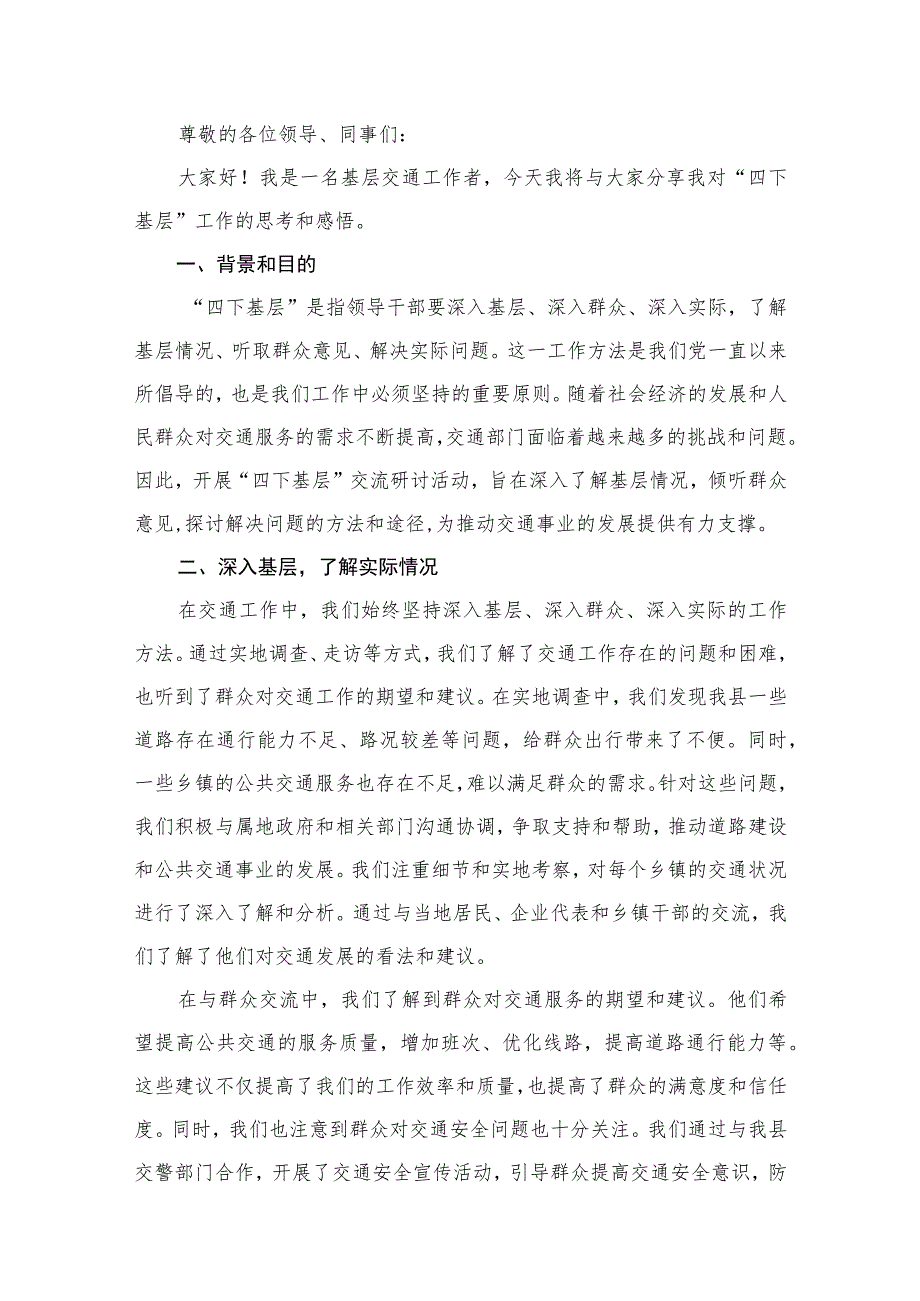 尊敬的各位领导、同事们：
大家好！我是一名基层交通工作者，今天我将与大家分享我对“四下
基层”工作的思考和感悟。
一、背景和目的
“四下基层”是指领导干部要深入基层、深入群众、深入实际，了解
基层情况、听取群众意见、解决实际问题。这一工作方法是我们党一直以来
所倡导的，也是我们工作中必须坚持的重要原则。随着社会经济的发展和人
民群众对交通服务的需求不断提高，交通部门面临着越来越多的挑战和问题。
因此，开展“四下基层”交流研讨活动，旨在深入了解基层情况，倾听群众
意见，探讨解决问题的方法和途径，为推动交通事业的发展提供有力支撑。
二、深入基层，了解实际情况
在交通工作中，我们始终坚持深入基层、深入群众、深入实际的工作
方法。通过实地调查、走访等方式，我们了解了交通工作存在的问题和困难，
也听到了群众对交通工作的期望和建议。在实地调查中，我们发现我县一些
道路存在通行能力不足、路况较差等问题，给群众出行带来了不便。同时，
一些乡镇的公共交通服务也存在不足，难以满足群众的需求。针对这些问题，
我们积极与属地政府和相关部门沟通协调，争取支持和帮助，推动道路建设
和公共交通事业的发展。我们注重细节和实地考察，对每个乡镇的交通状况
进行了深入了解和分析。通过与当地居民、企业代表和乡镇干部的交流，我
们了解了他们对交通发展的看法和建议。
在与群众交流中，我们了解到群众对交通服务的期望和建议。他们希
望提高公共交通的服务质量，增加班次、优化线路，提高道路通行能力等。
这些建议不仅提高了我们的工作效率和质量，也提高了群众的满意度和信任
度。同时，我们也注意到群众对交通安全问题也十分关注。我们通过与我县
交警部门合作，开展了交通安全宣传活动，引导群众提高交通安全意识，防